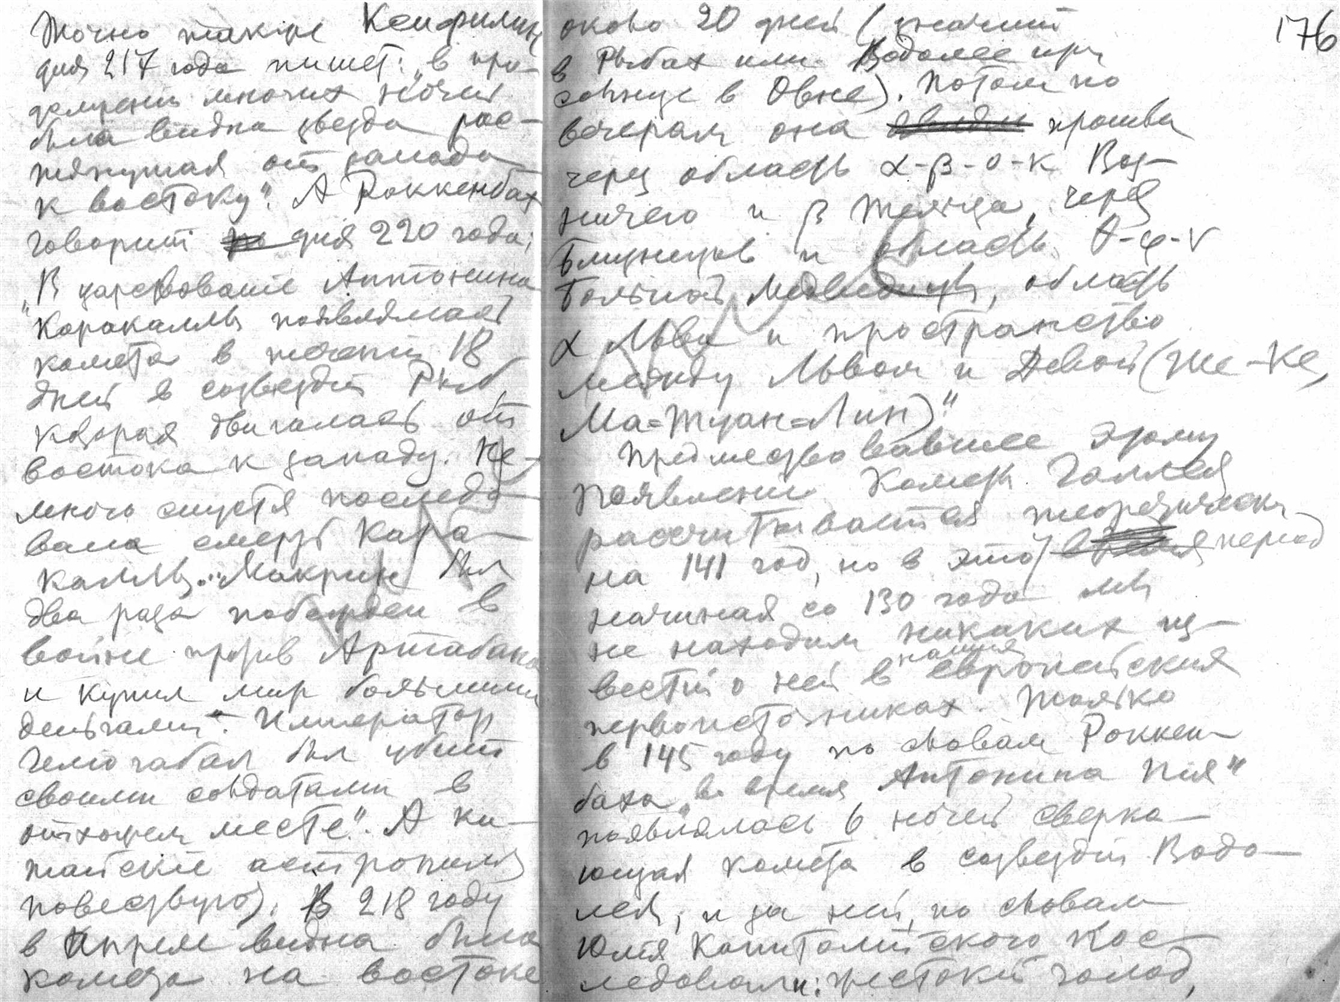 Точно также Ксифилин
для 217 года пишет: "в про-
должении многих ночей
была видна звезда рас-
тянутая от запада
к востоку". А Роккенбах
говорит для 220 года:
"В царствование Антонина
Каракаллы появлялась
комета в течении 18
дней в созвездии Рыб,
которая двигалась от
востока к западу. Не-
много спустя последо-
вала смерть Кара-
каллы." "Макрин был
два раза побежден в
войне против Артабана
и купил мир большими
деньгами". Император
Гелиогабал был убит
своими солдатами в
отхожем месте". А ки-
тайские астрономы
повествуют. В 218 году
в Апреле видна была
комета на востоке
176
около 20 дней (значит
в Рыбах или Водолее при
солнце в Овне). Потом по
вечерам она прошла
через область α-β-ο-κ Воз-
ничего и β Тельца, через
Близнецов и область θ-φ-ν
Большой Медведицы, область
α Льва и пространство
между Львом и Девой (Же-Ке,
Ма=Туан=Лин)"
Предшествовавшее этому
появление Кометы Галлея
рассчитывается теоретически
на 141 год, но в этот период
начиная со 130 года мы
не находим никаких из-
вестий о ней в наших европейских
первоисточниках. Только
в 145 году по словам Роккен-
баха, "во время Антонина Пия"
появлялась 6 ночей сверка-
ющая комета в созвездии Водо-
лея, и за ней, по словам
Юлия Капитолийского пос-
ледовали: жестокий голод,